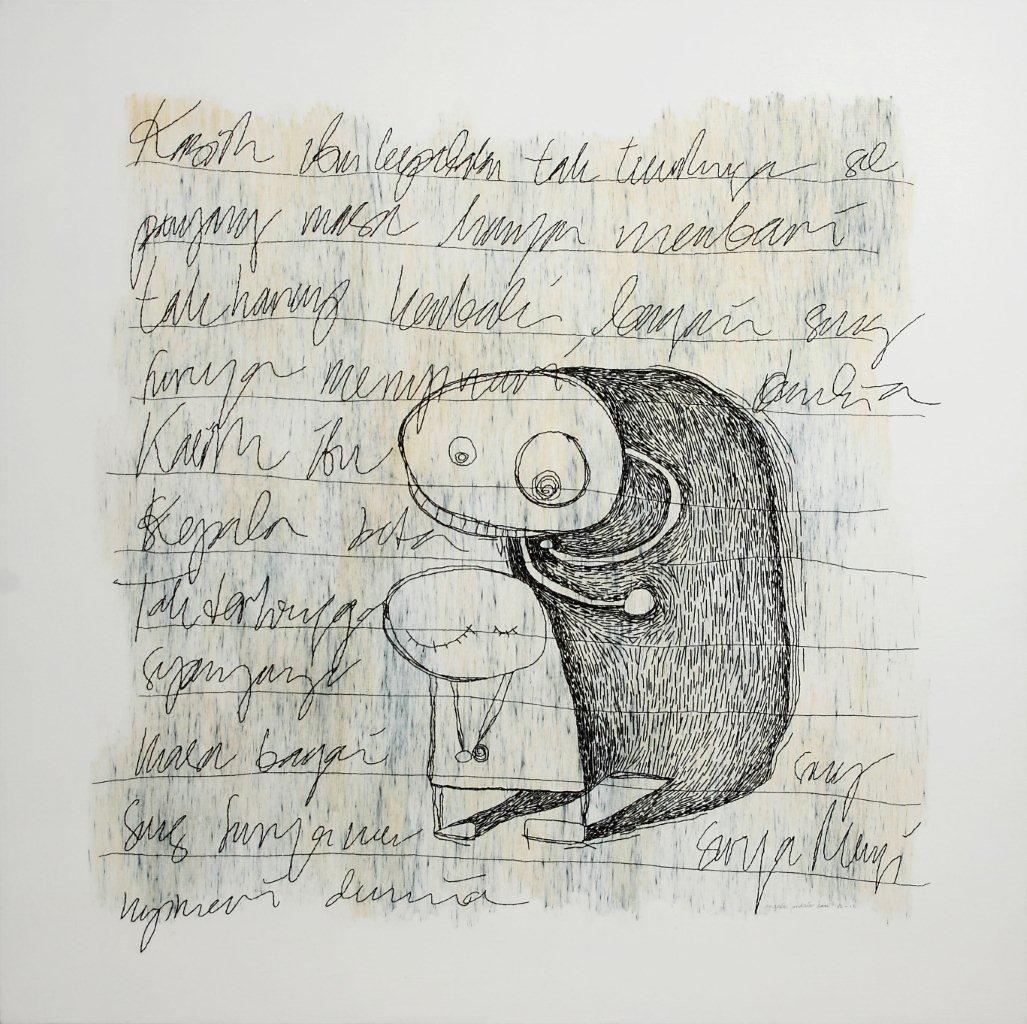 Kasih ibu kepada tak terhingga se
panjang masa hanya membari
tak harap kembali, bagai sang
surya menyinari dunia
Kasih ibu
Kepala beta
Tak terhingga
sepanjang
masa bagai sang
sang surya men surya Menyi
nyinari dunia